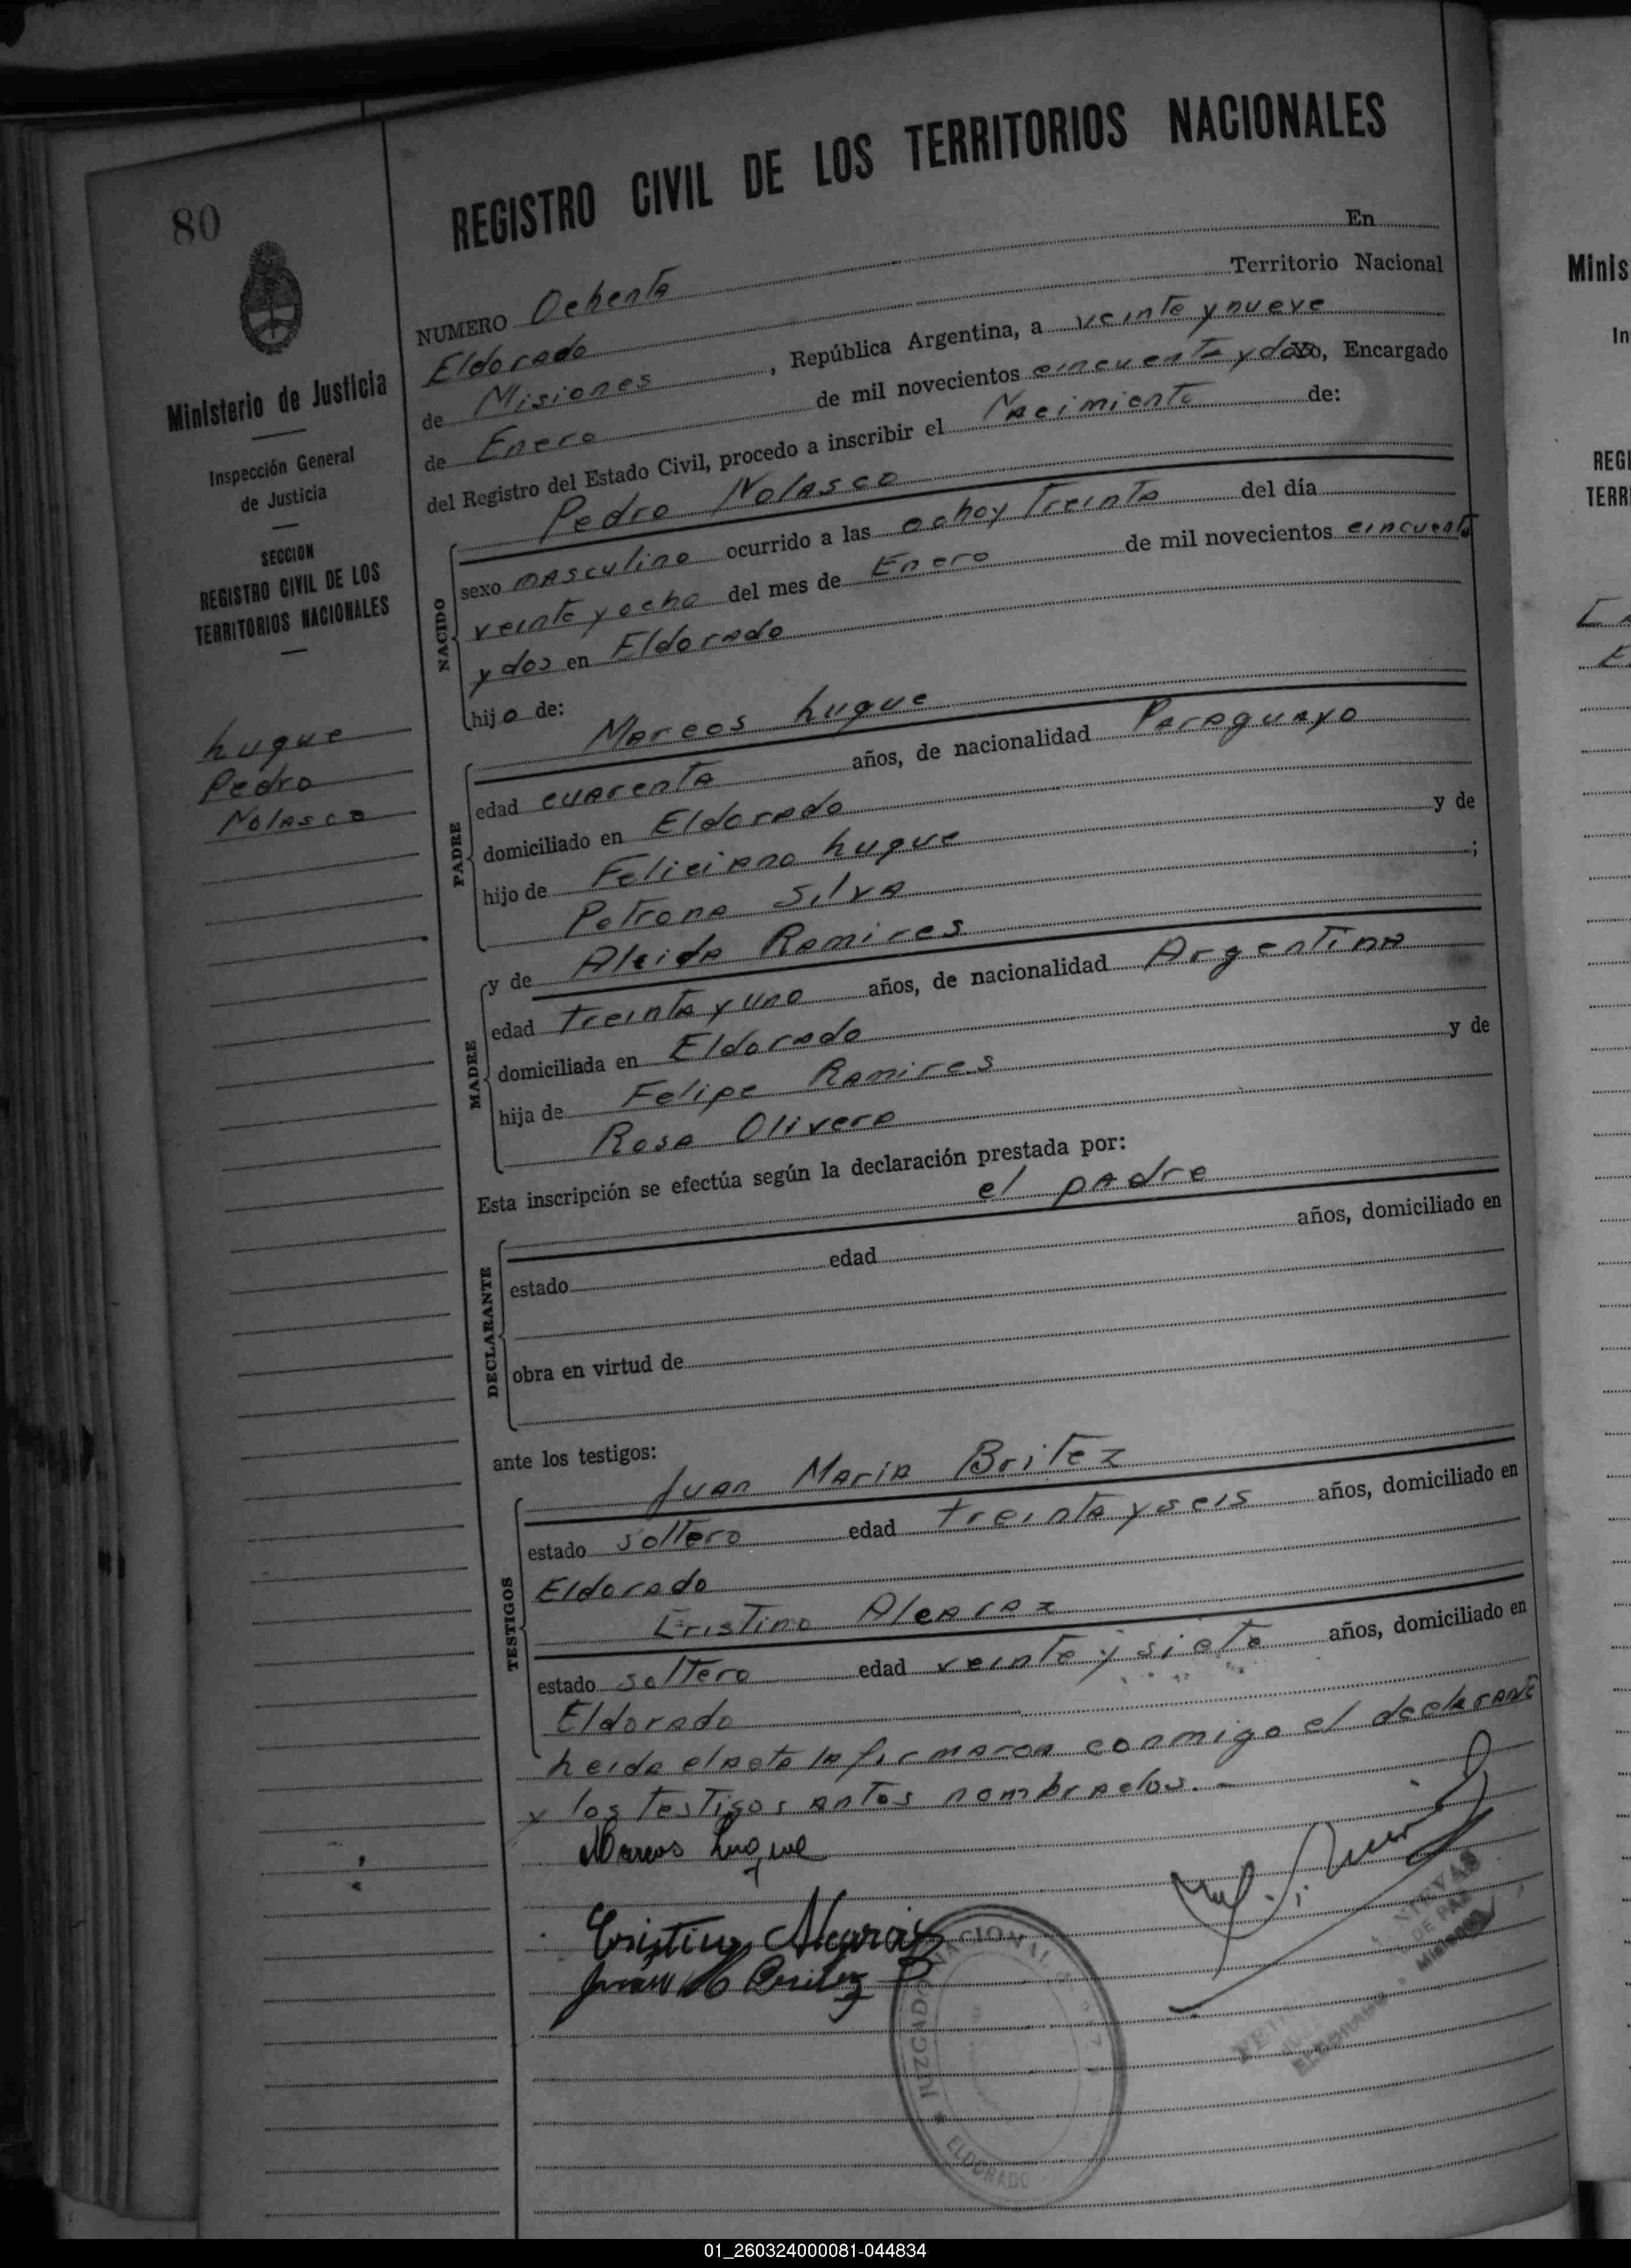 REGISTRO CIVIL DE LOS TERRITORIOS NACIONALES
80
Ministerio de Justicia
Inspección General
de Justicia
SECCION
REGISTRO CIVIL DE LOS
TERRITORIOS NACIONALES
Luque
Pedro
Nolasco
NUMERO Ochenta En
Eldorado Territorio Nacional
de Misiones, República Argentina, a veinte y nueve
de Enero de mil novecientos cincuenta y dos Yo, Encargado
del Registro del Estado Civil, procedo a inscribir el Nacimiento de:
Pedro Nolasco
NACIDO
sexo masculino ocurrido a las ocho y treinta del día
veinte y ocho del mes de Enero de mil novecientos cincuenta
y dos en Eldorado
hijo de:
Marcos Luque
PADRE
edad cuarenta años, de nacionalidad Paraguayo
domiciliado en Eldorado
hijo de Feliciano Luque y de
Petrona Silva ;
y de Alcida Ramires
MADRE
edad treinta y uno años, de nacionalidad Argentina
domiciliada en Eldorado
hija de Felipe Ramires y de
Rosa Olivera
Esta inscripción se efectúa según la declaración prestada por:
el padre
DECLARANTE
estado edad años, domiciliado en
obra en virtud de
ante los testigos:
Juan Maria Britez
TESTIGOS
estado soltero edad treinta y seis años, domiciliado en
Eldorado
Cristino Alcaraz
estado soltero edad veinte y siete años, domiciliado en
Eldorado
Leida el acta la firmaron conmigo el declarante
y los testigos antes nombrados.-
Marcos Luque
Cristino Alcaraz
Juan M Britez
JUZGADO NACIONAL
ELDORADO
NIEVAS
DE PAZ
ELDORADO Misiones
Minis
In
REGI
TERR
01_260324000081-044834